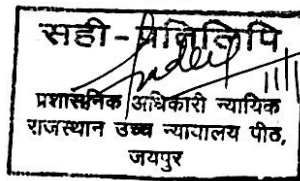 सही-प्रतिलिपि
प्रशासनिक अधिकारी न्यायिक
राजस्थान उच्च न्यायालय पीठ,
जयपुर